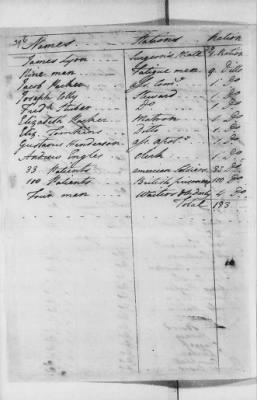 Names Stations Ration
James Lyon Surgeon's Mate Ration
Nine men Fatigue men 9 Ditto
Jacob Hacker Ass. Com. 1 Do
Joseph Colly Steward 1 Do
Fred. Do 1 Do
Elizabeth Hacker Matron 1 Do
Eliz. Tomkins Ditto 1 Do
Gustavus Henderson 1 Do
Andrew Engles Clerk 1 Do
33 Patients American Soldiers 33 Do
100 Patients British prisoners 100 Do
Four men Waiters 4 Do
Total 193